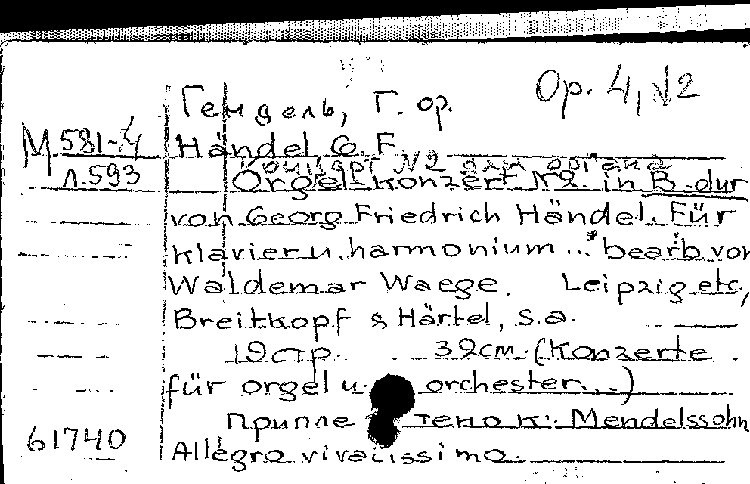 Гендель, Г. ор. Op. 4, №2
М 581-4 Händel G. F.
Концерт №2 для органа
л.593 Orgel-konzert №2. in B-dur
von Georg Friedrich Händel. Für
klavier u. harmonium ...* bearb. von
Waldemar Waege. Leipzig etc,
Breitkopf & Härtel, s.a.
19 стр. 39 см. (Konzerte
für orgel u. orchester...)
Приплетено к: Mendelssohn
61740 Allegro vivacissimo.